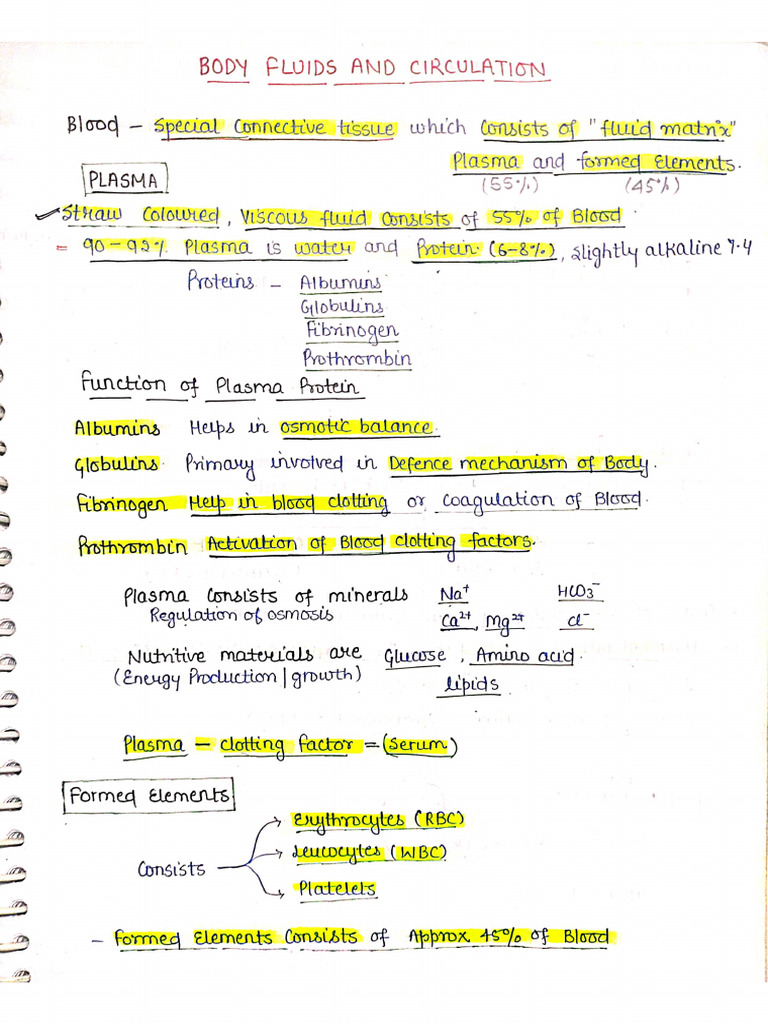 BODY FLUIDS AND CIRCULATION
Blood - Special Connective tissue which Consists of "fluid matrix"
Plasma and formed Elements.
(55%) (45%)
PLASMA
Straw Coloured, Viscous fluid Consists of 55% of Blood
= 90-92% Plasma is water and Protein (6-8%), Slightly alkaline 7.4
Proteins - Albumins
Globulins
Fibrinogen
Prothrombin
Function of Plasma Protein
Albumins Helps in osmotic balance.
Globulins Primary involved in Defence mechanism of Body.
Fibrinogen Help in blood clotting or Coagulation of Blood.
Prothrombin Activation of Blood clotting factors.
Plasma Consists of minerals Na⁺ HCO₃⁻
Regulation of osmosis Ca²⁺, Mg²⁺ Cl⁻
Nutritive materials are Glucose, Amino acid
(Energy Production | growth) lipids
Plasma - clotting factor = (Serum)
Formed Elements
Erythrocytes (RBC)
Consists Leucocytes (WBC)
Platelets
- Formed Elements Consists of Approx 45% of Blood